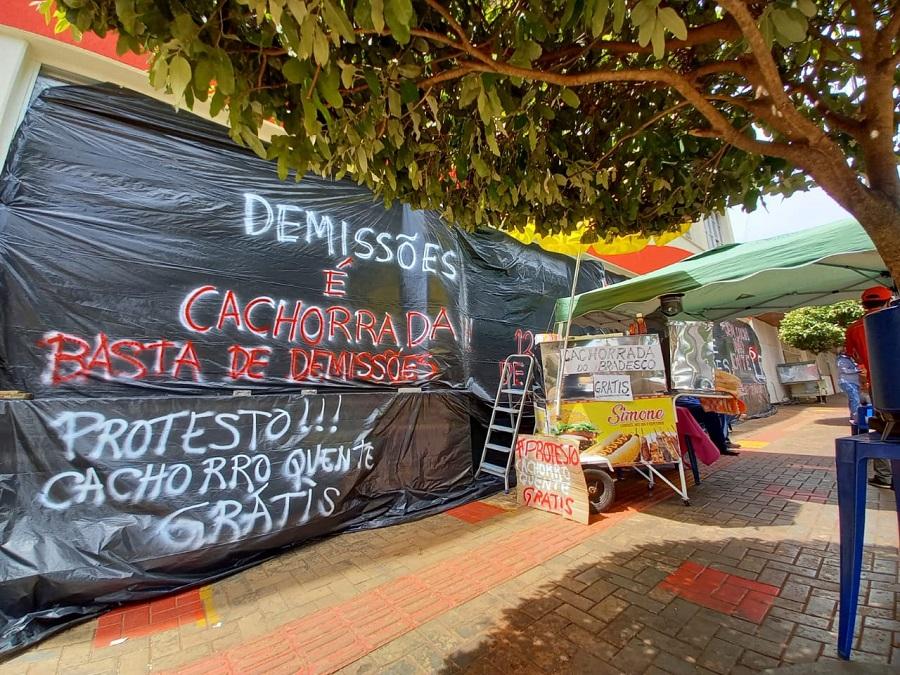 DEMISSÕES
É
CACHORRADA!!
BASTA DE DEMISSÕES
PROTESTO!!!
CACHORRO QUENTE
GRÁTIS
CACHORRADA
DO BRADESCO
GRATIS
Simone
PROTESTO
CACHORRO
QUENTE
GRATIS